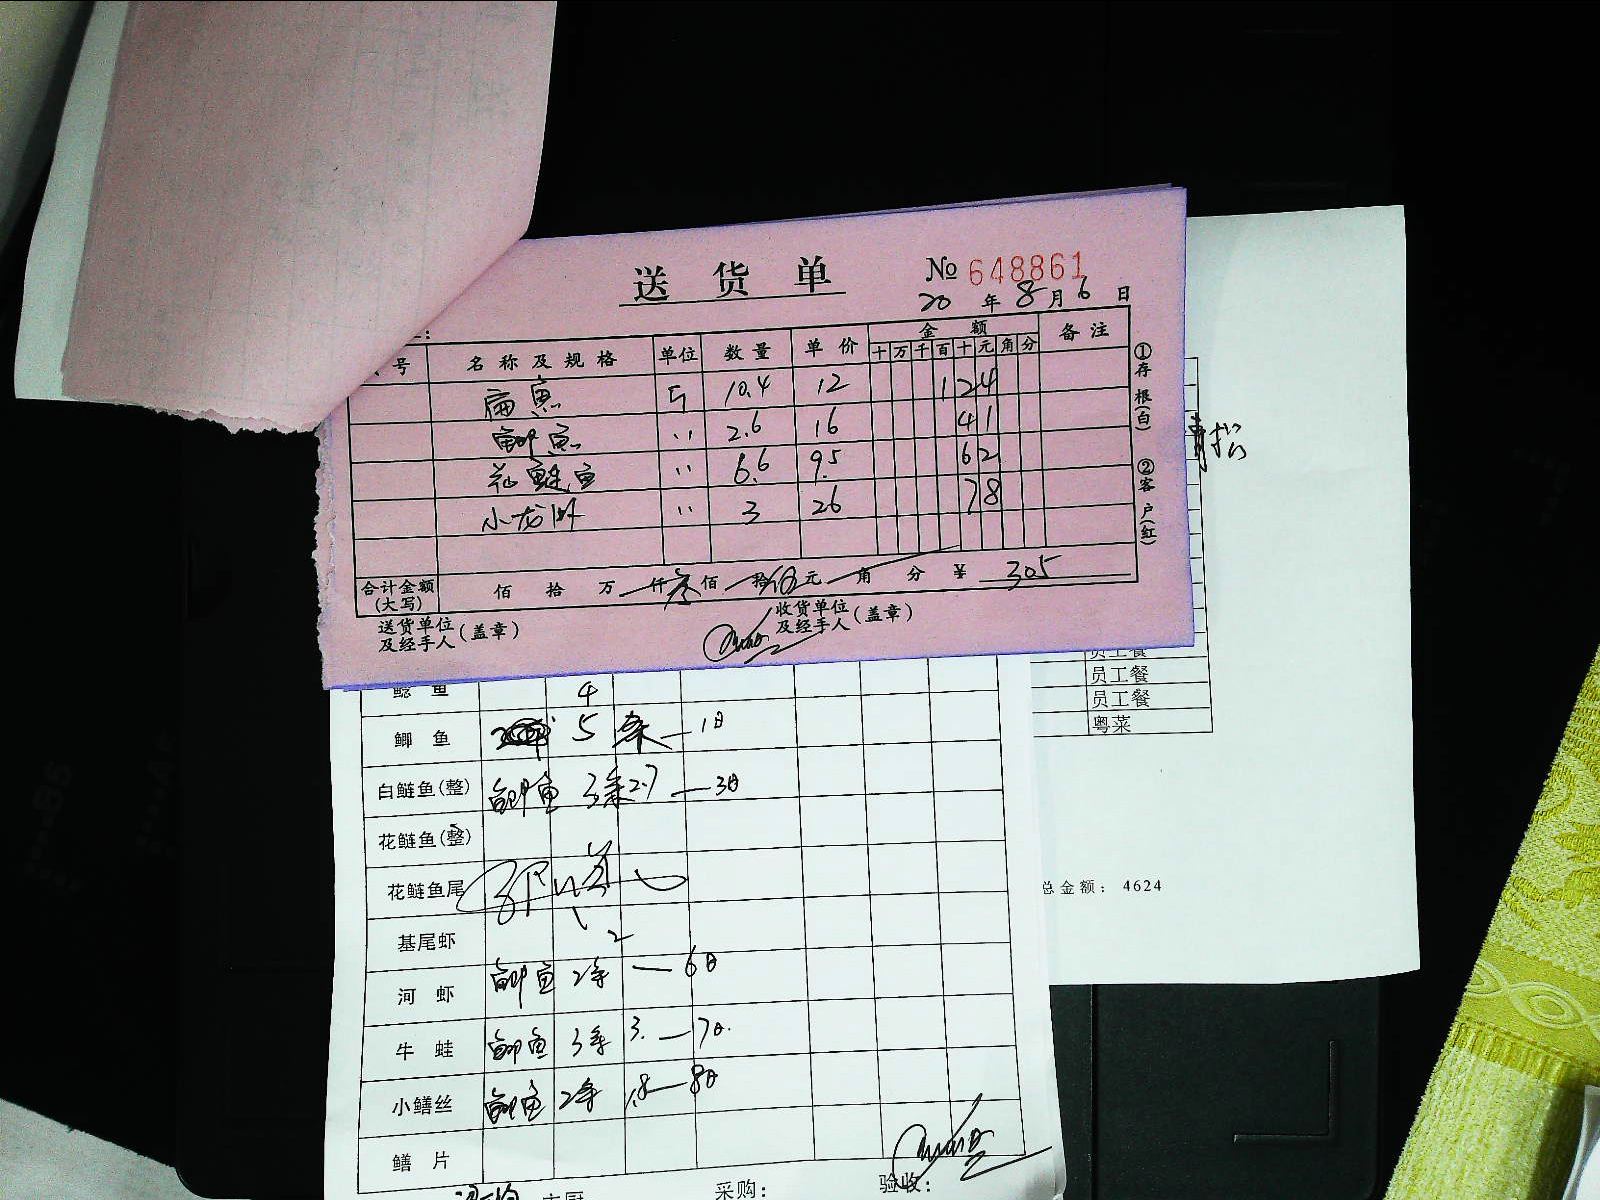 送货单
№ 648861
20 年 8 月 6 日
号 名称及规格 单位 数量 单价 金额 备注
十 万 千 百 十 元 角 分
扁鱼 斤 10.4 12 124
鲫鱼 〃 2.6 16 41
花鲢鱼 〃 6.6 9.5 62
小龙虾 〃 3 26 78
合计金额(大写) 佰 拾 万 仟 叁佰 拾 伍元 角 分 ¥ 305
送货单位及经手人(盖章) 收货单位及经手人(盖章)
①存根(白) ②客户(红)
员工餐
员工餐
员工餐
粤菜
总金额: 4624
鲶鱼 4
鲫鱼 5 条 — 1日
白鲢鱼(整) 鲫鱼 3条 2.7 — 3日
花鲢鱼(整)
花鲢鱼尾
基尾虾 2
河虾 鲫鱼 2条 — 6日
牛蛙 鲫鱼 3条 3. — 7日.
小鳝丝 鲫鱼 2条 1.8 — 8日
鳝片
主厨 采购: 验收: